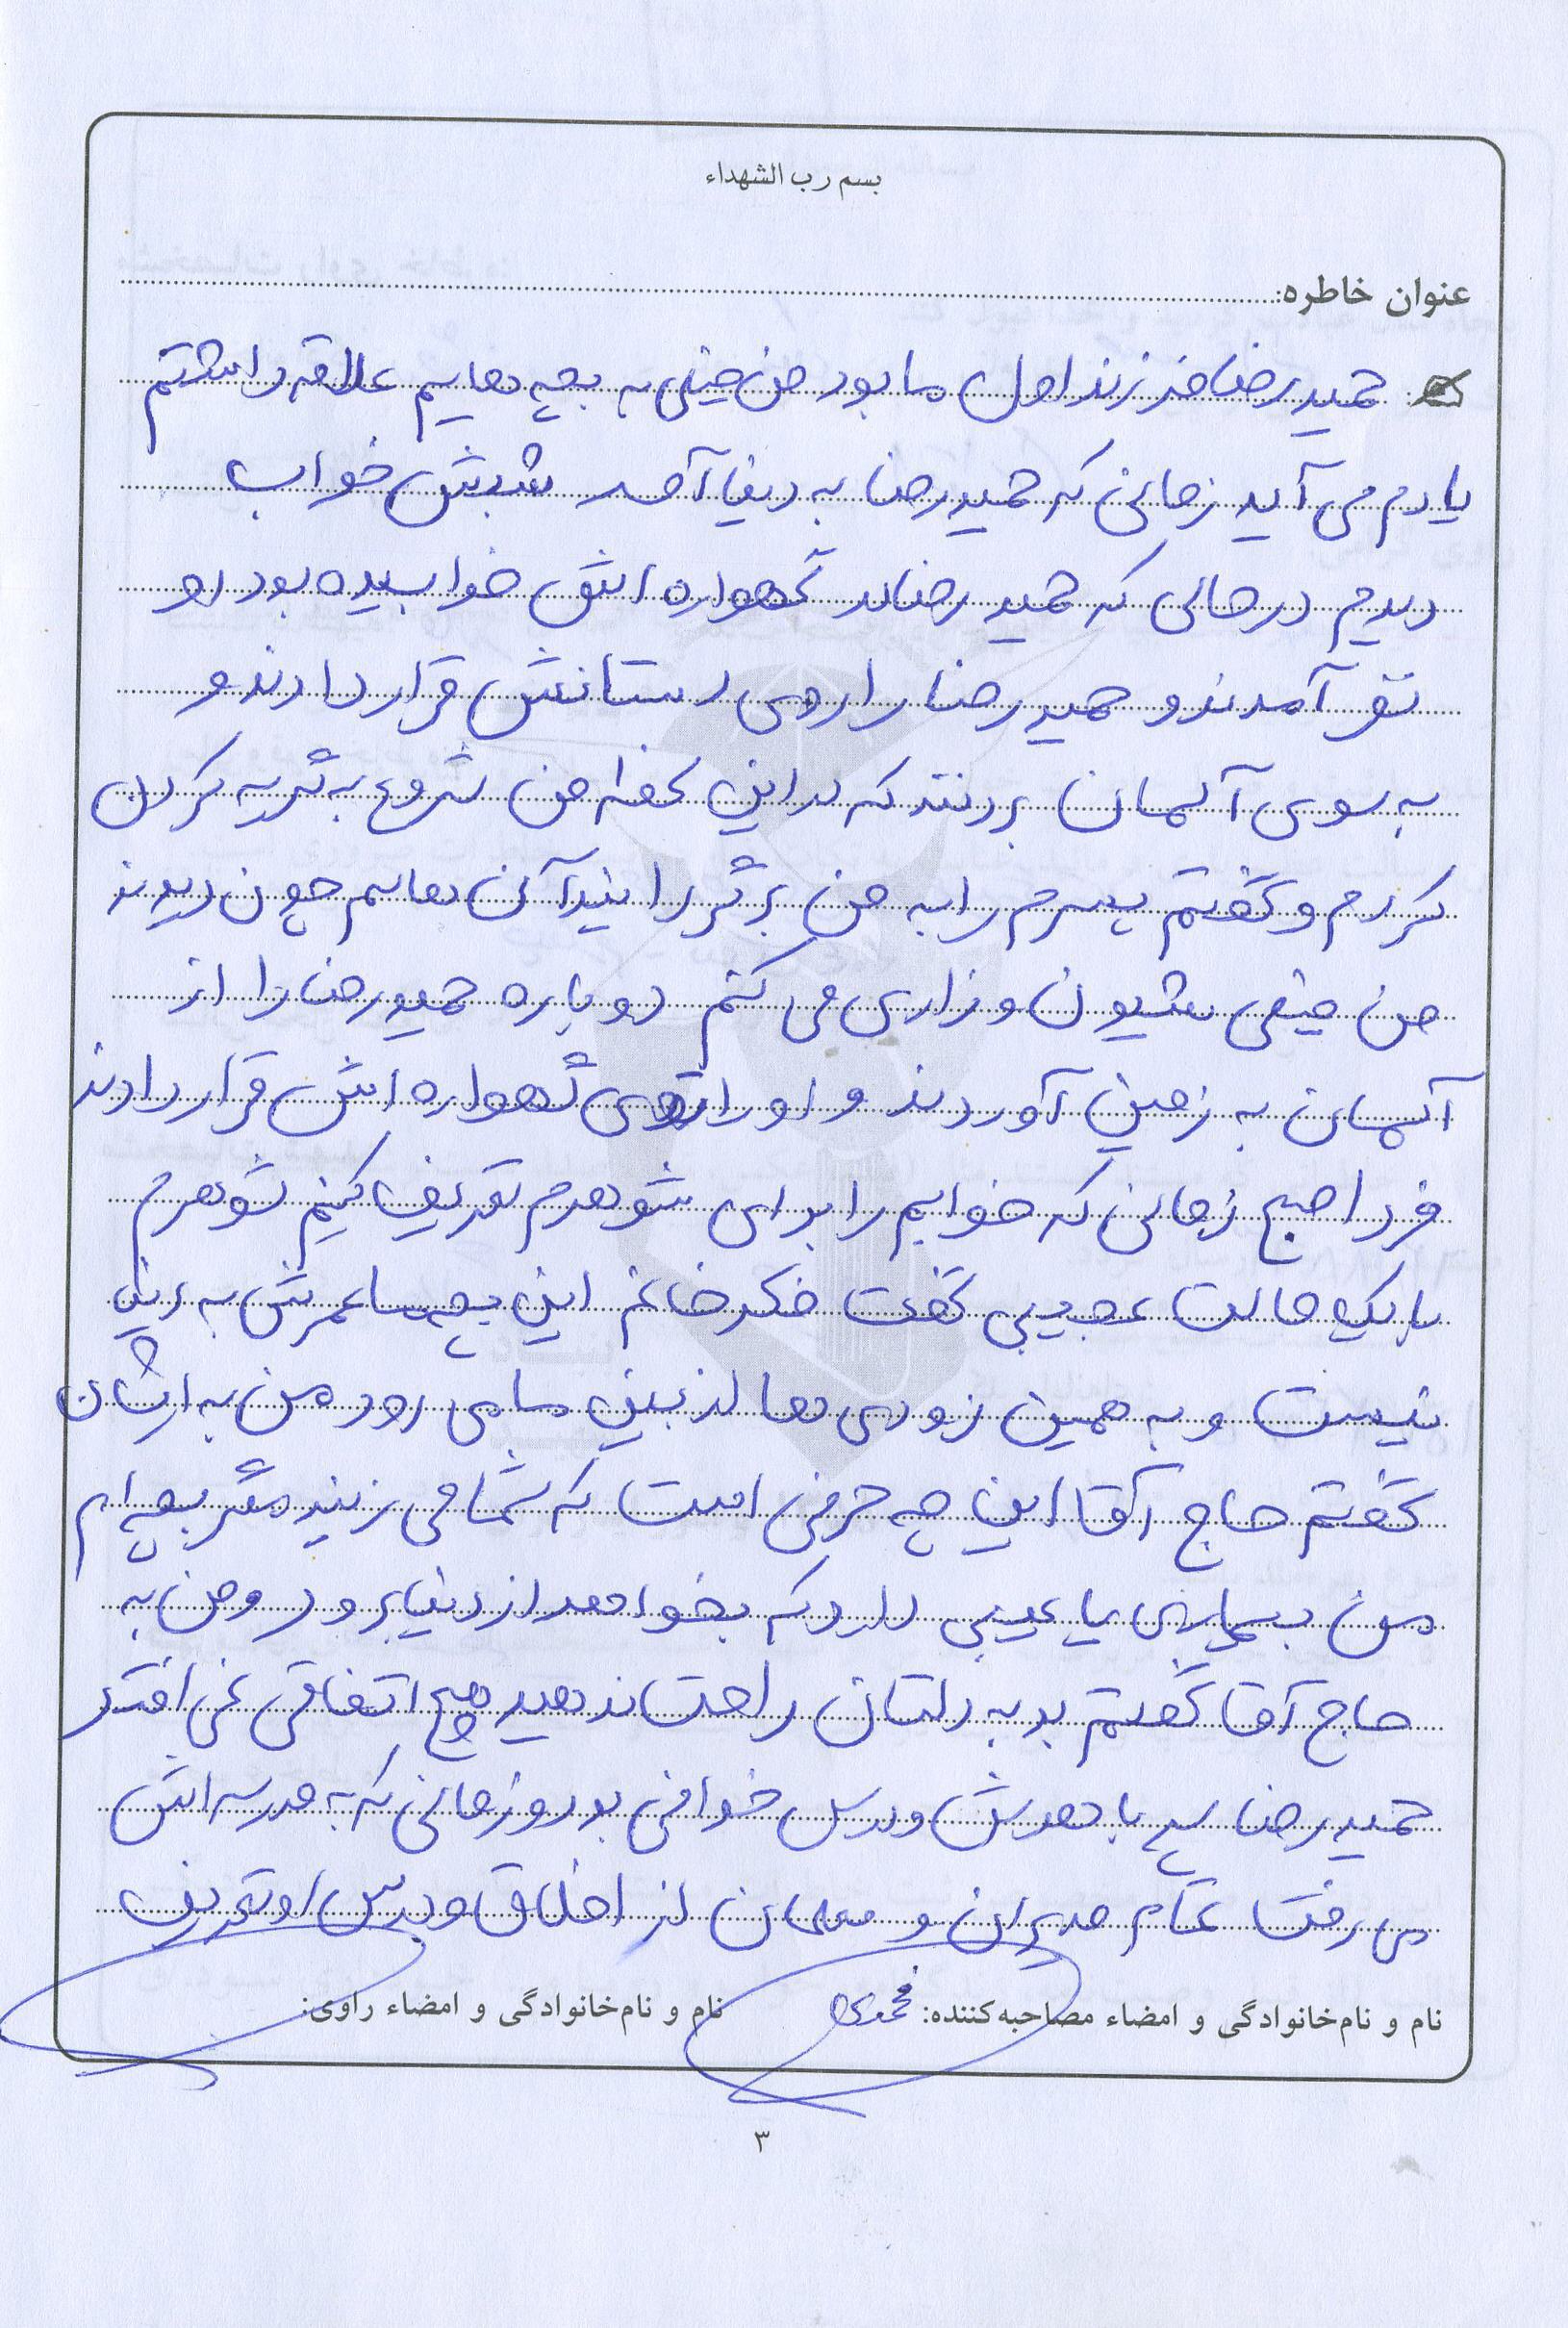 بسم رب الشهداء
عنوان خاطره:
حمیدرضا فرزند اول ما بود من خیلی به بچه هایم علاقه داشتم
یادم می آید زمانی که حمیدرضا به دنیا آمد شبش خواب
دیدم درحالی که حمیدرضا در گهواره اش خوابیده بود دو
نفر آمدند و حمیدرضا را روی دستانش قرار دادند و
به سوی آسمان بردند که در این لحظه من شروع به گریه کردن
کردم و گفتم پسرم را به من برگردانید آن ها هم چون دیدند
من خیلی شیون و زاری می کنم دوباره حمیدرضا را از
آسمان به زمین آوردند و او را توی گهواره اش قرار دادند
فردا صبح زمانی که خوابم را برای شوهرم تعریف کنیم شوهرم
با یک حالت عجیبی گفت فکر خانم این بچه ما عمرش به دنیا
نیست و به همین زودی ها از بین ما می رود من به ایشان
گفتم حاج آقا این چه حرفی است که شما می زنید مگر بچه ام
من بیماری یا عیبی دارد که بخواهد از دنیا برود و من به
حاج آقا گفتم بد به دلتان راه ندهید هیچ اتفاقی نمی افتد
حمیدرضا پسر باهوش و درس خوانی بود و زمانی که به مدرسه اش
می رفت تمام مدیران و معلمان از اخلاق و درس او تعریف
نام و نام‌خانوادگی و امضاء مصاحبه‌کننده: محمدی
نام و نام‌خانوادگی و امضاء راوی:
۳